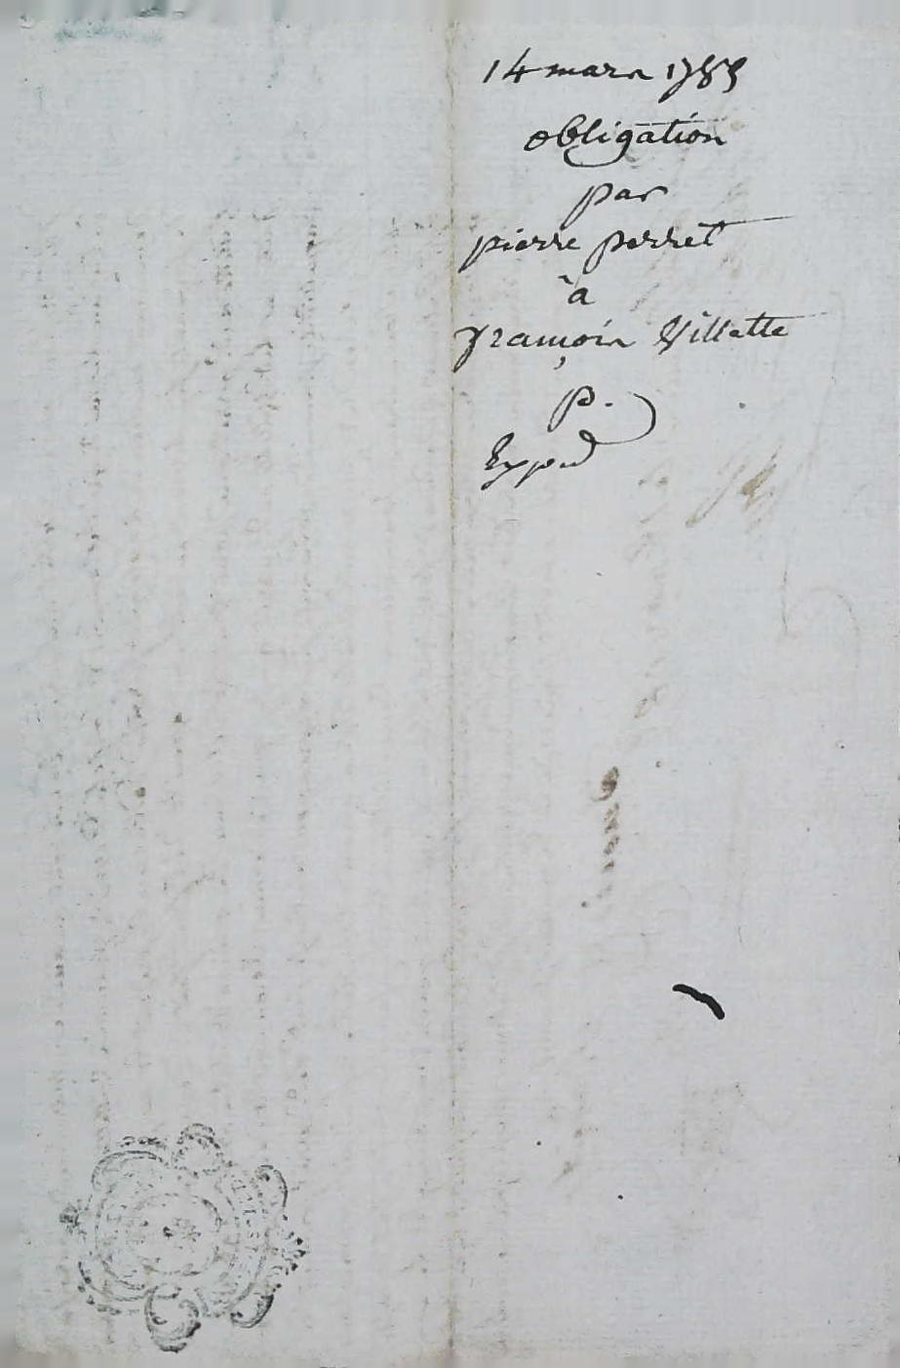 14 mars 1785
obligation
par
pierre perret
à
françois Villette
p.
Exped